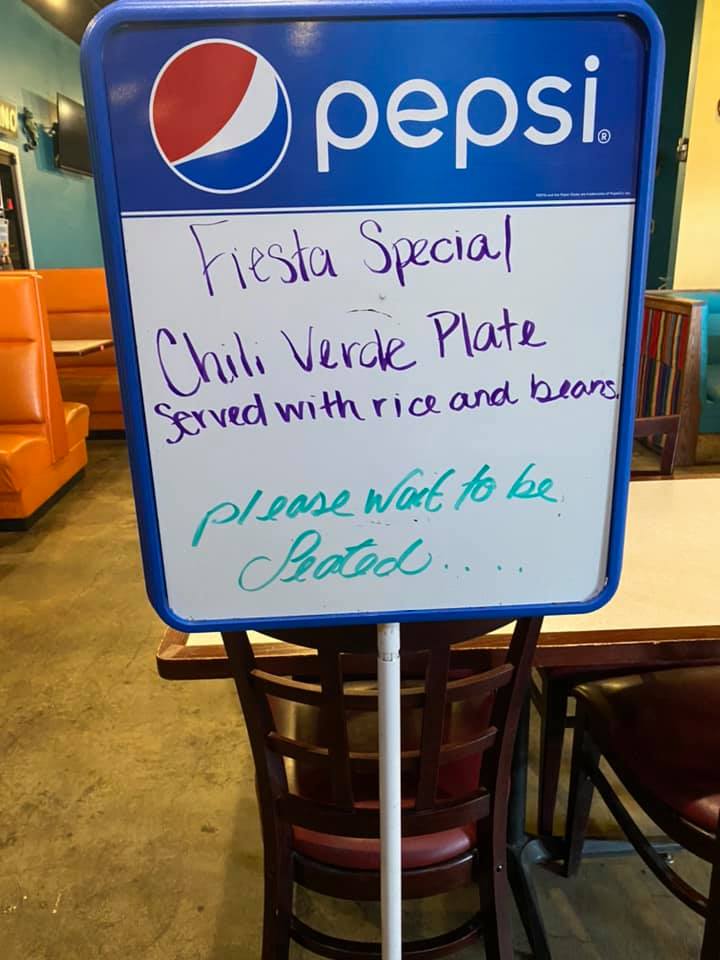 pepsi®
Fiesta Special
Chili Verde Plate
Served with rice and beans.
please wait to be
Seated.....